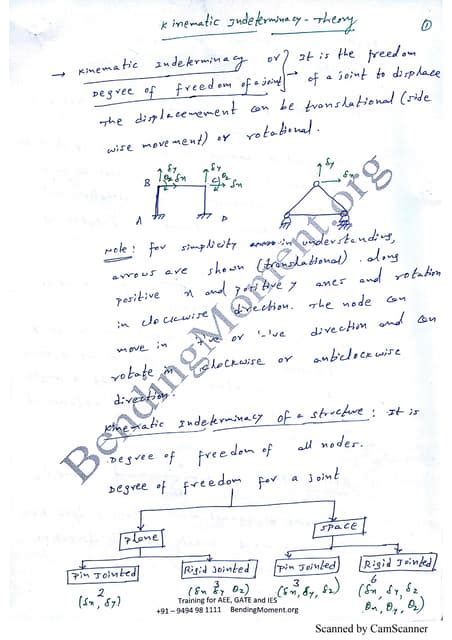 Kinematic Indeterminacy - Theory
①
→ Kinematic Indeterminacy or } It is the freedom
Degree of freedom of a joint } → of a joint to displace
The displacement can be translational (side
wise movement) or rotational.
δy δy δy
B θz δx C θz δx δx
A D
Note: for simplicity in understanding,
arrows are shown (translational) along
positive x and positive y axes and rotation
in clockwise direction. The node can
move in +'ve or '-'ve direction and can
rotate in clockwise or anticlockwise
direction.
Kinematic Indeterminacy of a structure: It is
Degree of freedom of all nodes.
Degree of freedom for a joint
Plane Space
Pin Jointed Rigid Jointed Pin Jointed Rigid Jointed
2 3 3 6
(δx, δy) (δx δy θz) (δx, δy, δz) (δx, δy, δz
θx, θy, θz)
BendingMoment.org
Training for AEE, GATE and IES
+91 – 9494 98 1111 BendingMoment.org
Scanned by CamScanner